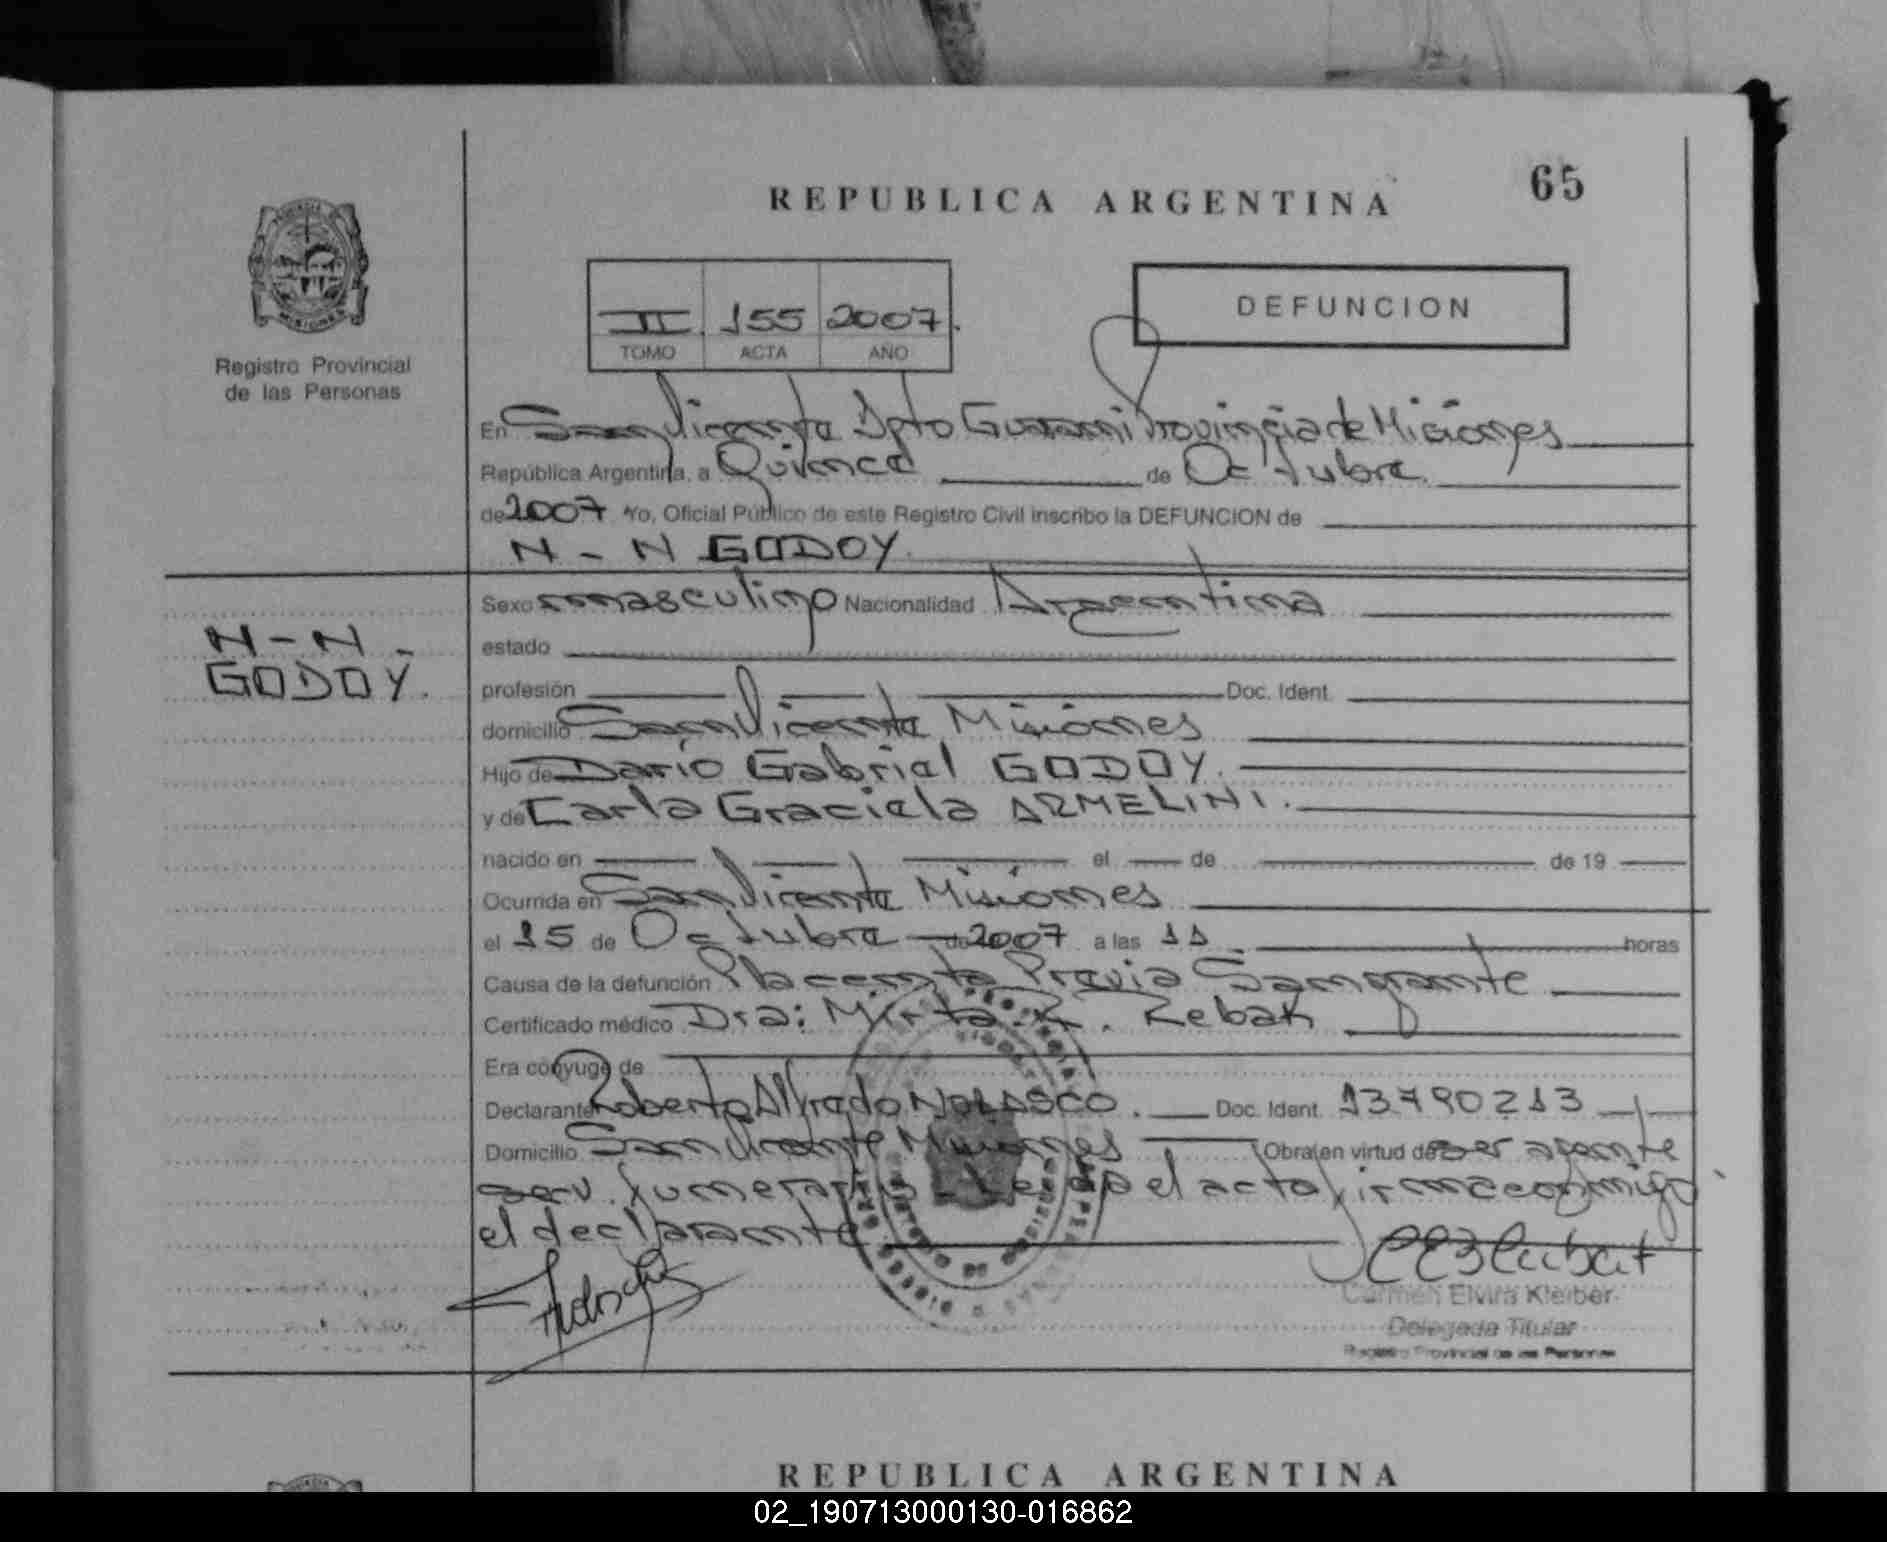 REPUBLICA ARGENTINA
65
II 155 2007
TOMO ACTA AÑO
DEFUNCION
Registro Provincial
de las Personas
En San Vicente Dpto Guarani Provincia de Misiones
República Argentina, a Quince de Octubre
de 2007 Yo, Oficial Público de este Registro Civil inscribo la DEFUNCION de
N - N GODOY.
Sexo masculino Nacionalidad Argentina
N - N -
GODOY.
estado
profesión Doc. Ident.
domicilio San Vicente Misiones
Hijo de Darío Gabriel GODOY.
y de Carla Graciela ARMELINI.
nacido en el de de 19
Ocurrida en San Vicente Misiones
el 15 de Octubre de 2007 a las 11 horas
Causa de la defunción Placenta Previa Sangrante
Certificado médico Dra: Mirta R. Rebak
Era cónyuge de
Declarante Roberto Alfredo NOLASCO. Doc. Ident. 13790213
Domicilio San Vicente Misiones Obra en virtud de ser agente
serv. funerarios - Leida el acta firma conmigo
el declarante
Carmen Elvira Kleiber
Delegada Titular
Registro Provincial de las Personas
REPUBLICA ARGENTINA
02_190713000130-016862